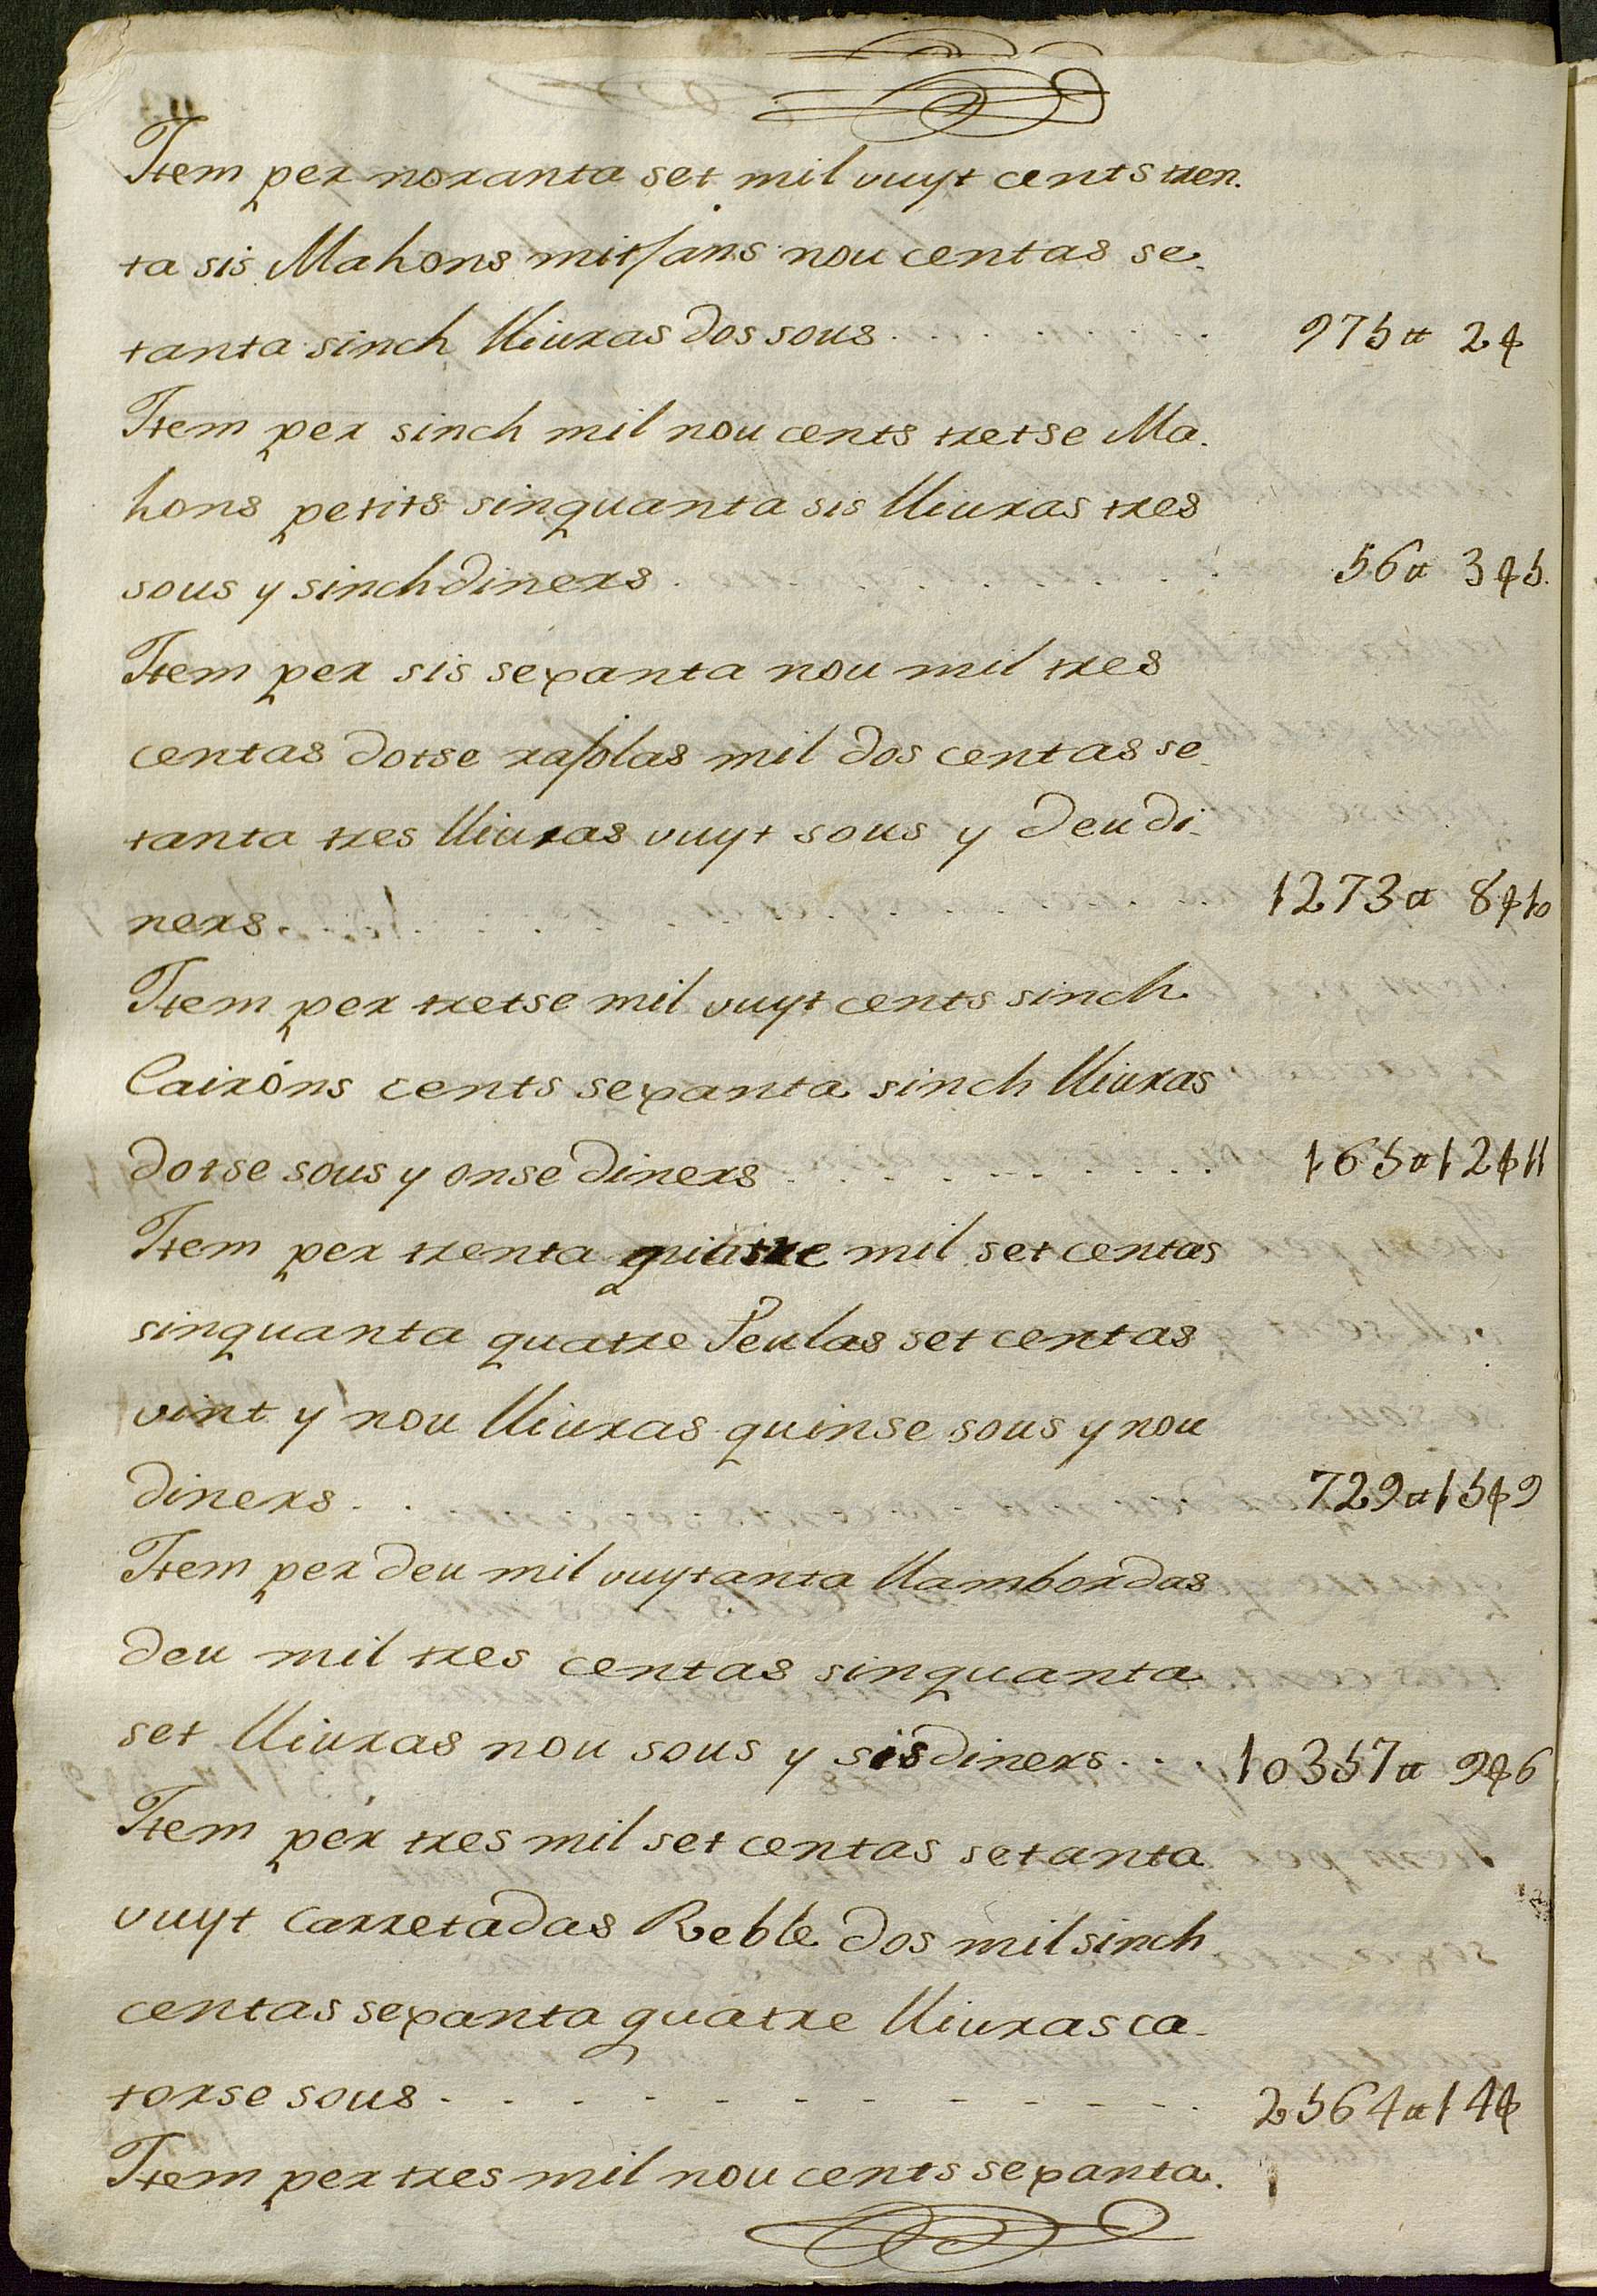 Item per noranta set mil vuyt cents tren-
ta sis Mahons mitsans nou centas se-
tanta sinch lliuras dos sous . . . . . . . 975 ₶ 2 ß
Item per sinch mil nou cents tretse Ma-
hons petits sinquanta sis lliuras tres
sous y sinch diners . . . . . . . . 56 ₶ 3 ß 5.
Item per sis sexanta nou mil tres
centas dotse rasolas mil dos centas se-
tanta tres lliuras vuyt sous y deu di-
ners . . . . . . . . . . . 1273 ₶ 8 ß 10
Item per tretse mil vuyt cents sinch
Cairóns cents sexanta sinch lliuras
dotse sous y onse diners . . . . . . . 165 ₶ 12 ß 11
Item per trenta quatre mil set centas
sinquanta quatre Teulas set centas
vint y nou lliuras quinse sous y nou
diners . . . . . . . . 729 ₶ 15 ß 9
Item per deu mil vuytanta llambordas
deu mil tres centas sinquanta
set lliuras nou sous y sis diners . . . 10357 ₶ 9 ß 6
Item per tres mil set centas setanta
vuyt carretadas Reble dos mil sinch
centas sexanta quatre lliuras ca-
torse sous - - - - - - - - - - 2564 ₶ 14 ß
Item per tres mil nou cents sexanta.